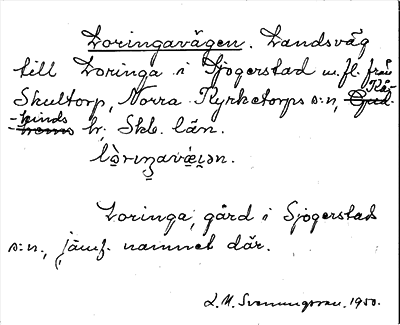 Loringavägen. Landsväg
till Loringa i Sjogerstad m. fl. från
Skultorp, Norra Kyrketorps s:n, Gud- Kå-
-hems -kinds hr, Skb. län.
Loringa, gård i Sjogerstad
s:n., jämf. namnet där.
L. M. Svenungsson. 1950.